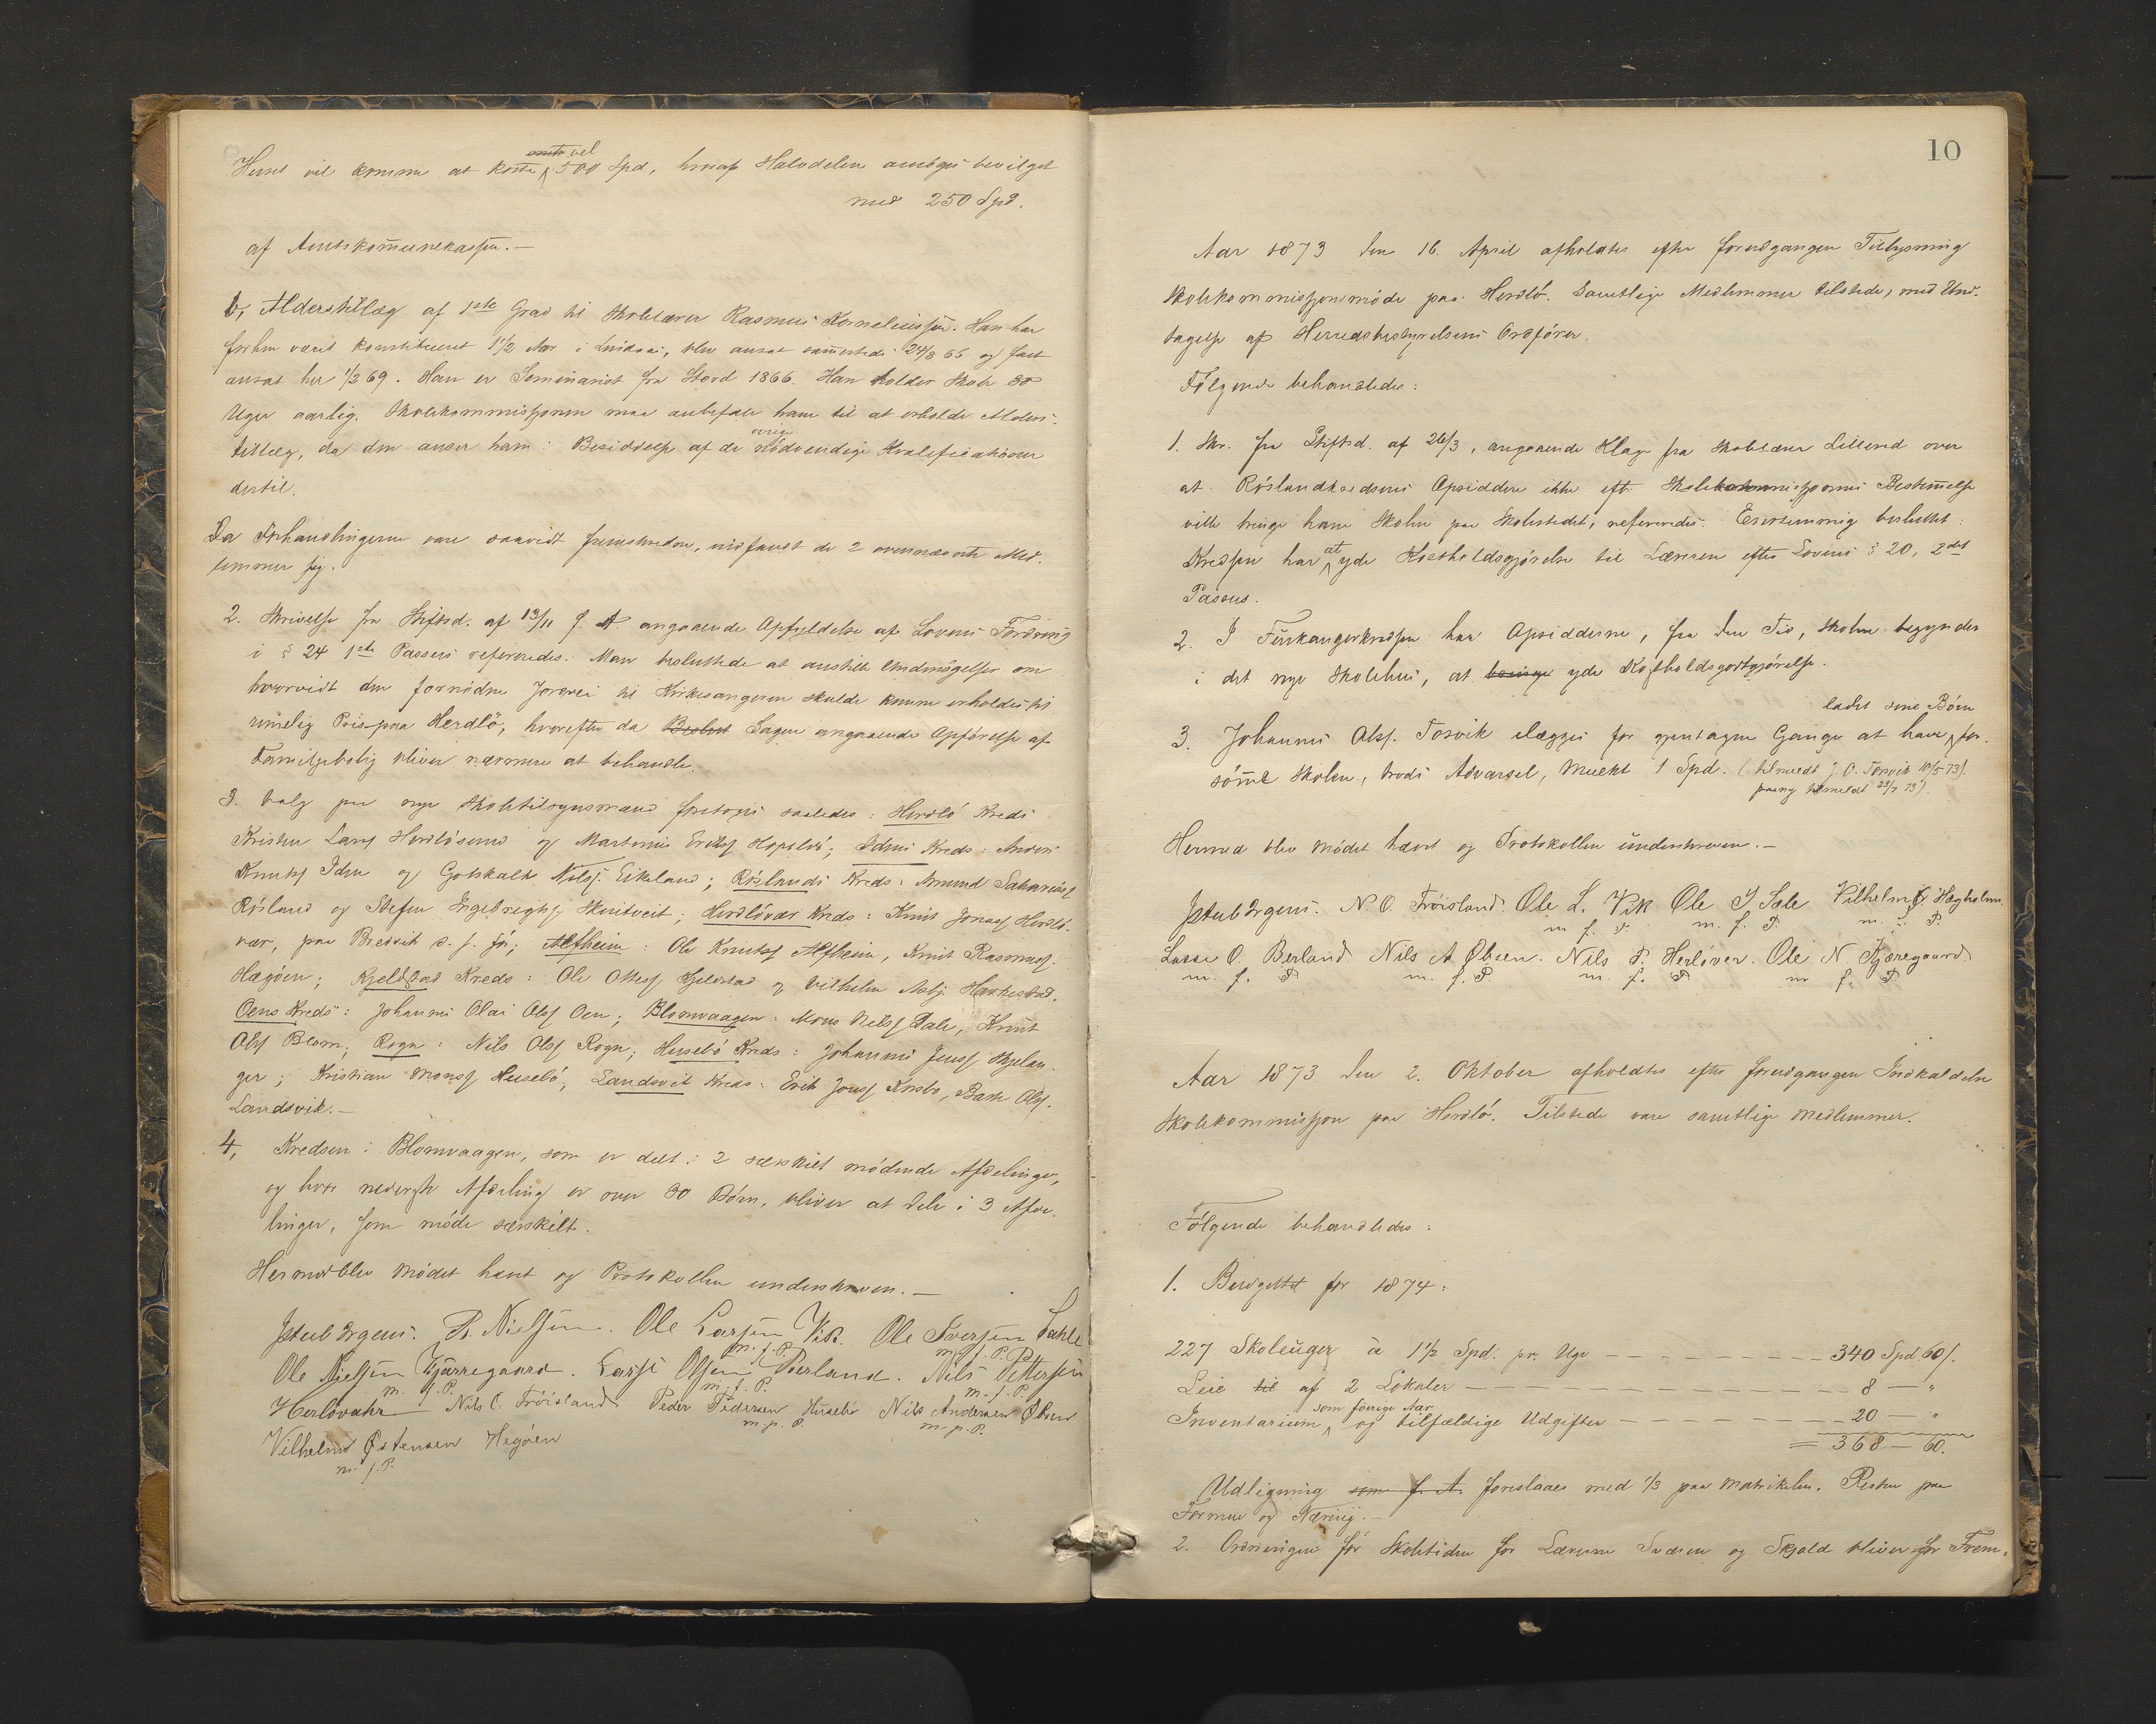 Huset vil komme at koste vel 500 Spd, hvoraf Halvdelen ansöges bevilget
med 250 Spd.
af Amtskommunekassen. —
b, Alderstillæg af 1ste Grad til Skolelærer Rasmus Korneliussen. Han har
forhen været konstitueret 1 1/2 Aar i Lindaas, blev ansat sammesteds 24/8 66 og fast
ansat her 1/3 69. Han er Seminarist fra Stord 1866. Han holder Skole 30
Uger aarlig. Skolekommissjonen maa anbefale ham til at erholde Alders-
tillæg, da den anser ham i Besiddelse af de övrige nödvendige Kvalifikationer
dertil.
Da Forhandlingerne vare saavidt fremskredne, indfandt de 2 ovennævnte Med-
lemmer sig.
2. Skrivelse fra Stiftsd. af 13/11 f. A. angaaende Opfyldelse af Lovens Fordring
i § 24 1ste Passus refereredes. Man besluttede at anstille Undersögelser om
hvorvidt den fornödne Jordvei til Kirkesangeren skulde kunne erholdes til
rimelig Pris paa Herdlö, hvorefter da Beslut Sagen angaaende Opförelse af
Familjebolig bliver nærmere at behandle.
3. Valg paa nye Skoletilsynsmænd foretoges saaledes: Herdlö Kreds
Kristen Larss Herdlösund og Martinus Erikss Hopslö; Idens Kreds: Anders
Knutss Iden og Gotskalk Nilss. Eikeland; Röslands Kreds: Amund Sakariass
Rösland og Stefen Ingebregtss Skuitveit; Herdlövær Kreds: Knut Jonass Herdlö-
vær, paa Bredvik s. f. för; Alfheim: Ole Knutss Alfheim, Knut Rasmuss.
Hægöen; Kjeldstad Kreds: Ole Ottess Kjelstad og Vilhelm Asbj. Harkestad.
Oens Kreds: Johannes Olai Olss Oen; Blomvaagen: Mons Nilss Dale, Knut
Olss Blom; Rogn: Nils Olss Rogn; Husebö Kreds: Johannes Jenss Skjelan-
ger; Kristian Monss Husebö; Landsvik Kreds: Erik Jonss Krosbo, Baste Olss.
Landsvik. —
4, Kredsen i Blomvaagen, som er delt i 2 særskilt mödende Afdelinger,
og hvor nederste Afdeling er over 30 Börn, bliver at dele i 3 Afde-
linger, som möde særskilt.
Hermed blev Mödet hævt og Protokollen underskreven. —
Jstub Irgens. R. Nielsen. Ole Larsen Vik. Ole Iversen Sahle
m. f. P. m. f. P.
Ole Nielsen Kjærregaard. Lasse Olsen Berland. Nils Pettersen
m. f. P. m. f. P. m. f. P.
Herlövahr Nils O. Fröisland Peder Pedersen Husebö Nils Andersen Öbsen
m. p. P. m. p. P.
Vilhelm Östensen Hegöen
m. f. P.
10
Aar 1873 den 16. April afholdtes efter forudgangen Tillysning
Skolekommissjonsmöde paa Herdlö. Samtlige Medlemmer tilstede, med Und-
tagelse af Herredsbestyrelsens Ordförer.
Fölgende behandledes:
1. Skr. fra Stiftsd. af 26/3, angaaende Klage fra Skolelærer Lillerud over
at Röslandkredsens Opsiddere ikke efter Skolekommissjonens Bestemmelse
ville bringe ham Skolen paa Skolestedet, refereredes. Enstemmig besluttet:
Kredsen har at yde Kostholdsgjörelse til Læreren efter Lovens § 20, 2det
Passus.
2. I Turkangerkredsen har Opsidderne, fra den Tid, Skolen begynder
i det nye Skolehus, at yde Kostholdsgodtgjörelse.
ladet sine Börn
3. Johannes Olss. Torsvik ilægges for gjentagne Gange at have for-
sömt Skolen, trods Advarsel, Mulkt 1 Spd. (tilmeldt J. O. Torsvik 10/5 73).
paany tilmeldt 23/7 73).
Hermed blev Mödet hævt og Protokollen underskreven. —
Jstub Irgens. N O. Fröisland. Ole L. Vik Ole I Sale Vilhelm Ö. Hægholm.
m f. P m. f. P m. f. P.
Lasse O. Berland Nils A Öbsen. Nils P. Herlöver. Ole N. Kjæregaard.
m. f. P m. f. P. m. f. P m f. P.
Aar 1873 den 2. Oktober afholdtes efter forudgangen Indkaldelse
Skolekommissjon paa Herdlö. Tilstede vare samtlige Medlemmer.
Fölgende behandledes:
1. Budgettet for 1874:
227 Skoleuger à 1 1/2 Spd. pr. Uge — — — — — — 340 Spd 60/.
Leie til af 2 Lokaler — — — — — — — — 8 — "
som forrige Aar
Inventarium, og tilfældige Udgifter — — — — — 20 — "
= 368 — 60.
Udligning som f. A. foreslaaes med 1/3 paa Matrikelen, Resten paa
Formue og Næring. —
2. Ordningen for Skoletiden for Lærerne Sværen og Skjold bliver for Frem-